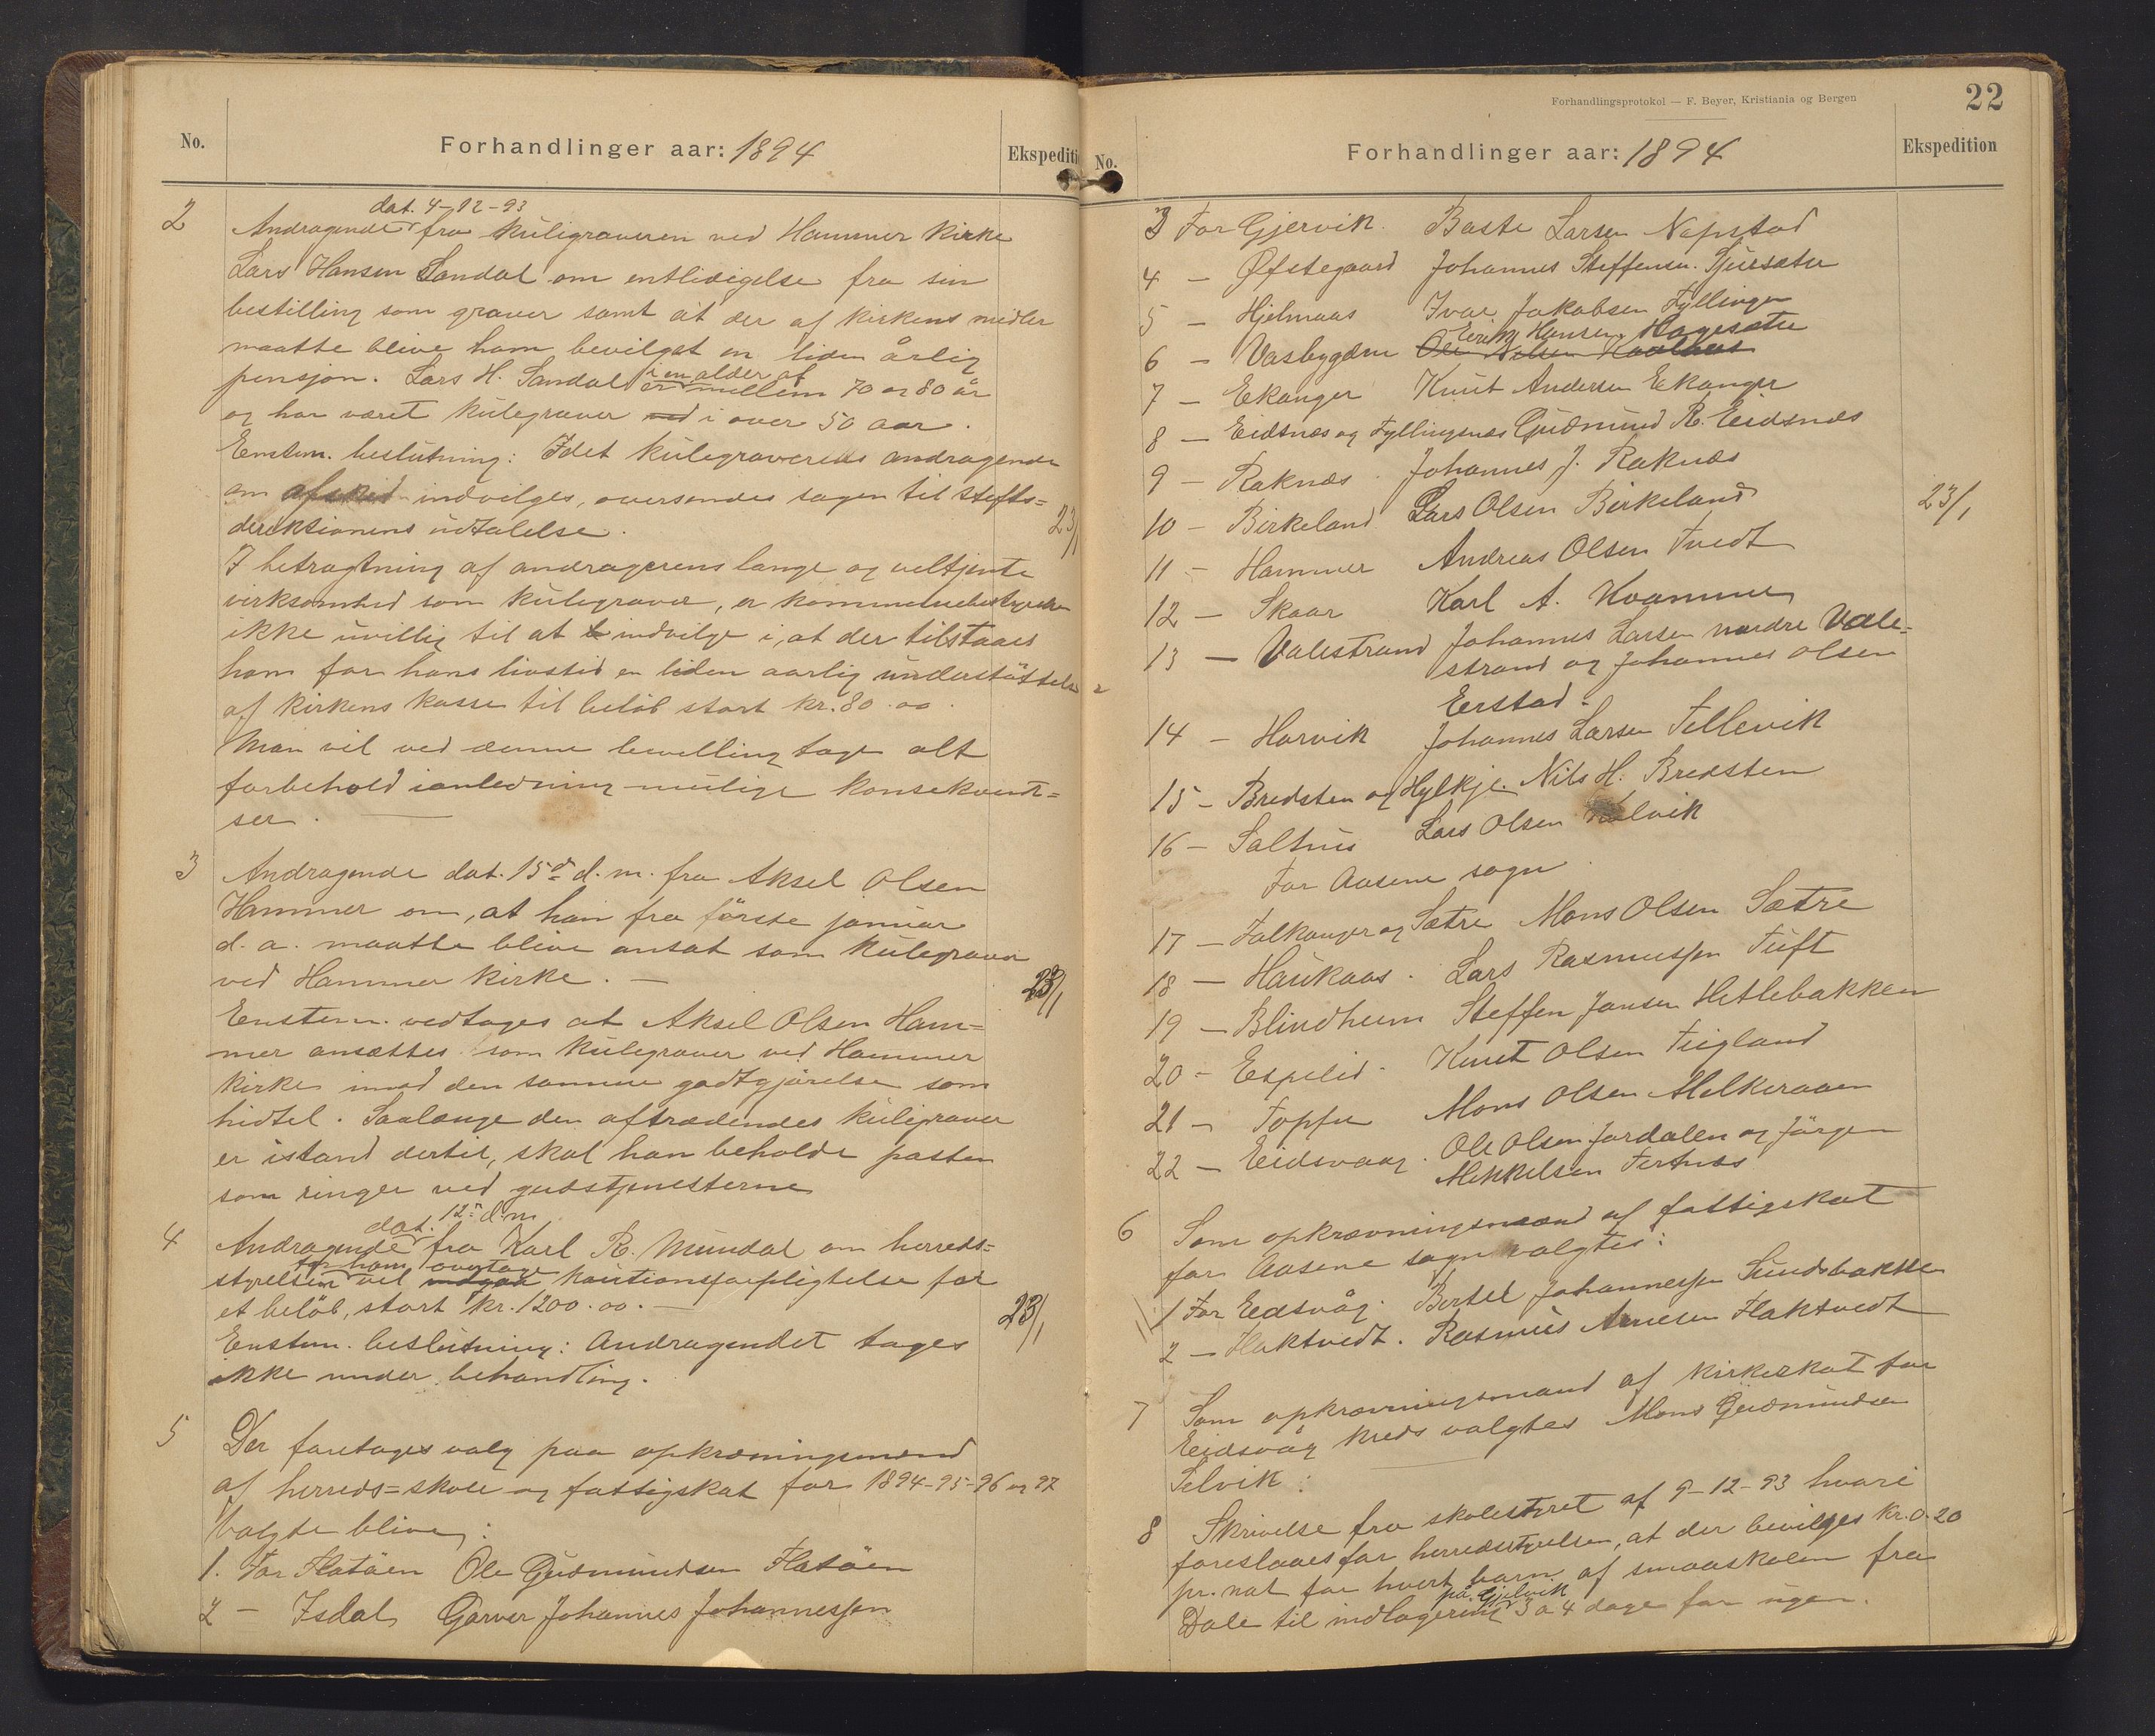 No.
Forhandlinger aar: 1894
Ekspediti
2
dat. 4-12-93
Andragende fra kulegraveren ved Hammer kirke
Lars Hansen Sandal om entledigelse fra sin
bestilling som graver samt at der af kirkens midler
maatte blive ham bevilget en liden årlig
pensjon. Lars H. Sandal er i en alder af mellem 70 og 80 år
og har været kulegraver ved i over 50 aar.
Enstem. beslutning: Idet kulegraverens andragende
om afsked indvilges, oversendes sagen til stifts=
direktionens udtalelse.
23/1
I betragtning af andragerens lange og veltjente
virksomhed som kulegraver, er kommunebestyrelsen
ikke uvillig til at indvilge i, at der tilstaaes
ham for hans livstid en liden aarlig understøttelse
af kirkens kasse til beløb stort kr. 80.00.
Man vil ved denne bevilling tage alt
forbehold ianledning mulige konsekvent=
ser.
3
Andragende dat. 15de d.m. fra Aksel Olsen
Hammer om, at han fra første januar
d.a. maatte blive ansat som kulegraver
ved Hammer kirke. —
23/1
Enstem. vedtages at Aksel Olsen Ham=
mer ansættes som kulegraver ved Hammer
kirke imod den samme godtgjørelse som
hidtil. Saalænge den aftrædendes kulegraver
er istand dertil, skal han beholde posten
som ringer ved gudstjenesterne
4
dat. 12te d.m.
Andragende fra Karl R. Mundal om herreds=
for ham overtage
styrelsen vil indgaa kautionsforpligtelse for
et beløb, stort kr. 1200.00. —
23/1
Enstem. beslutning: Andragendet tages
ikke under behandling.
5
Der foretages valg paa opkrævningsmænd
af herreds= skole og fattigskat for 1894-95-96 og 97
Valgte blive:
1. For Flatøen Ole Gudmundsen Flatøen
2 — Isdal Garver Johannes Johannessen
Forhandlingsprotokol — F. Beyer, Kristiania og Bergen
22
No.
Forhandlinger aar: 1894
Ekspedition
3 For Gjervik. Baste Larsen Nepstad
4 — Øfstegaard Johannes Steffensen
5 — Hjelmaas Ivar Jakobsen Fyllingen
Hansen Hagesæter
6 — Vasbygden Ole Nilsen
7 — Ekanger Knut Andersen Ekanger
8 — Eidsnæs og Fyllingsnæs Gudmund R. Eidsnæs
9 — Raknæs. Johannes J. Raknæs
10 — Birkeland Lars Olsen Birkeland
23/1
11 — Hammer Andreas Olsen Tvedt
12 — Skaar Karl A. Kvamme
13 — Valestrand Johannes Larsen nordre Vale=
strand og Johannes Olsen
Erstad.
14 — Horvik Johannes Larsen Tellevik
15 — Bredsten og Hylkje. Nils H. Bredsten
16 — Salhus Lars Olsen
For Aasene sogn
17 — Falkanger og Sætre Mons Olsen Sætre
18 — Haukaas. Lars Rasmussen Tuft
19 — Blindheim Steffen Jansen Hetlebakken
20 — Espelid. Knut Olsen Teigland
21 — Toppe Mons Olsen Melkeraaen
22 — Eidsvaag. Ole Olsen Jordalen og Jørgen
Mikkelsen Tertnæs
6
Som opkrævningsmænd af fattigskat
for Aasene sogn valgtes:
1 For Eidsvåg. Bertel Johannessen Sundsbakken
2 — Flaktvedt. Rasmus Arnesen Flaktvedt
7
Som opkrævningsmand af kirkeskat for
Eidsvåg kreds valgtes Mons Gudmundsen
Selvik.
8
Skrivelse fra skolestyret af 9-12-93 hvori
foreslaaes for herredsstyrelsen, at der bevilges kr. 0.20
pr. nat for hvert barn af smaaskolen fra
på Gjelvik
Dale til indlogering 3 a 4 dage for ugen.